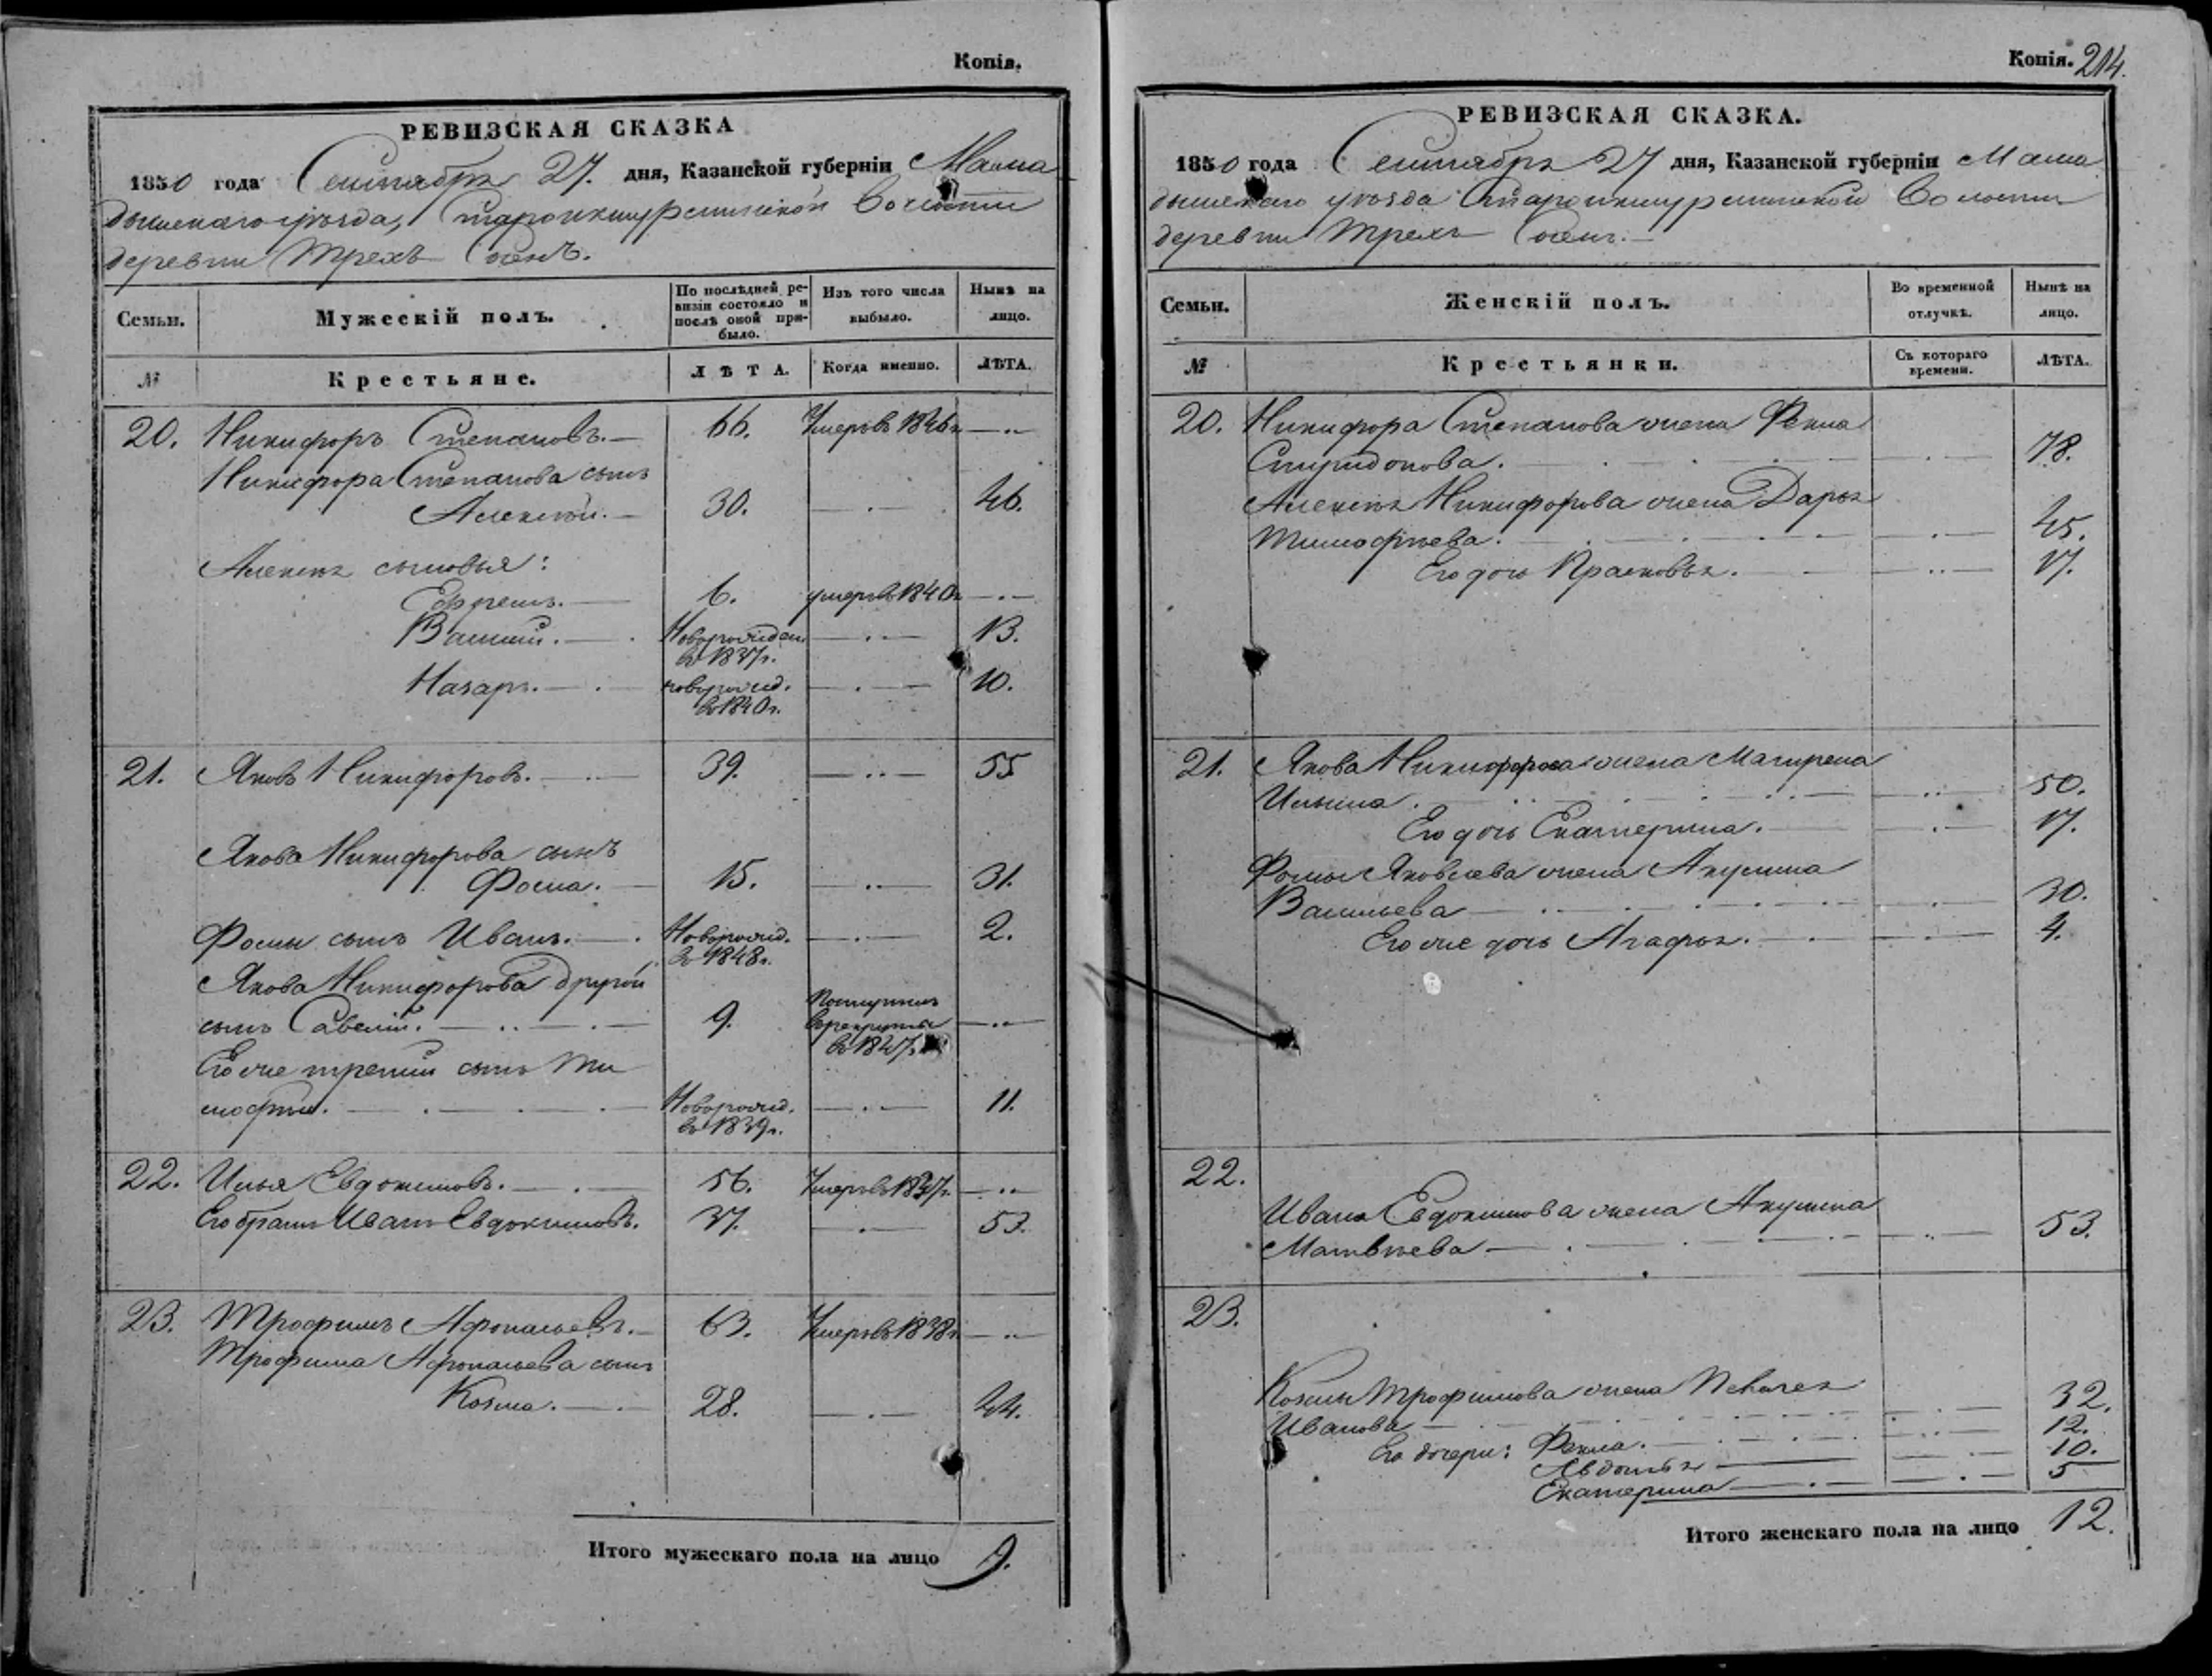 Копія.
РЕВИЗСКАЯ СКАЗКА
1850 года Сентября 27. дня, Казанской губерніи Мама
дышскаго уѣзда, Староикшурминской волости
деревни Трехъ Сосенъ.
Семьи. Мужескій полъ. По послѣдней ре-
визіи состояло и
послѣ оной при-
было. Изъ того числа
выбыло. Нынѣ на
лицо.
№ Крестьяне. ЛѢТА. Когда именно. ЛѢТА.
20. Никифоръ Степановъ.— 66. Умеръ въ 1846г. —··—
Никифора Степанова сынъ
Алексѣй.— 30. —·— 46.
Алексѣя сыновья:
Ефремъ.— 6. умеръ въ 1840г. —··—
Василій.—· Новорожден.
въ 1837г. —·— 13.
Назаръ.—·— новорожд.
въ 1840г. —·— 10.
21. Яковъ Никифоровъ.— 39. —··— 55
Якова Никифорова сынъ
Фома.— 15. —··— 31.
Фомы сынъ Иванъ.—· Новорожд.
въ 1848г. —·— 2.
Якова Никифорова другой
сынъ Савелій.— 9. Поступилъ
въ рекруты
въ 1847г. —··—
Его же третій сынъ Ти
мофѣй.— Новорожд.
въ 1839г. —·— 11.
22. Илья Евдокимовъ.— 56. Умеръ въ 1837г. —··—
Его братъ Иванъ Евдокимовъ. 37. —·— 53.
23. Трофимъ Афонасьевъ.— 63. Умеръ въ 1838г. —··—
Трофима Афонасьева сынъ
Козма.— 28. —·— 44.
Итого мужескаго пола на лицо 9.
Копія. 214.
РЕВИЗСКАЯ СКАЗКА.
1850 года Сентября 27 дня, Казанской губерніи Мама
дышскаго уѣзда Староикшурминской волости
деревни Трехъ Сосенъ.—
Семьи. Женскій полъ. Во временной
отлучкѣ. Нынѣ на
лицо.
№ Крестьянки. Съ котораго
времени. ЛѢТА.
20. Никифора Степанова жена Фекла
Спиридонова. —·— 78.
Алексѣя Никифорова жена Дарья
Тимофѣева. —·— 45.
Его дочь Прасковья. —··— 17.
21. Якова Никифорова жена Матрена
Ильина. —··— 50.
Его дочь Екатерина. —·— 17.
Фомы Яковлева жена Акулина
Васильева —·— 30.
Его же дочь Агафья. —·— 4.
22.
Ивана Евдокимова жена Акулина
Матвѣева —··— 53.
23.
Козмы Трофимова жена Пелагея
Иванова —·— 32.
Его дочери: Фекла. —··— 12.
Авдотья —·— 10.
Екатерина —·— 5
Итого женскаго пола на лицо 12.